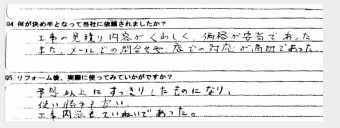 Q4 何が決め手となって当社に依頼されましたか？
工事の見積り内容がくわしく、価格が妥当であった。
また、メールでの問合せや店での対応が適切であった。
Q5 リフォーム後、実際に使ってみていかがですか？
予想以上にすっきりしたものになり、
使い勝手が良い
工事内容もていねいであった。